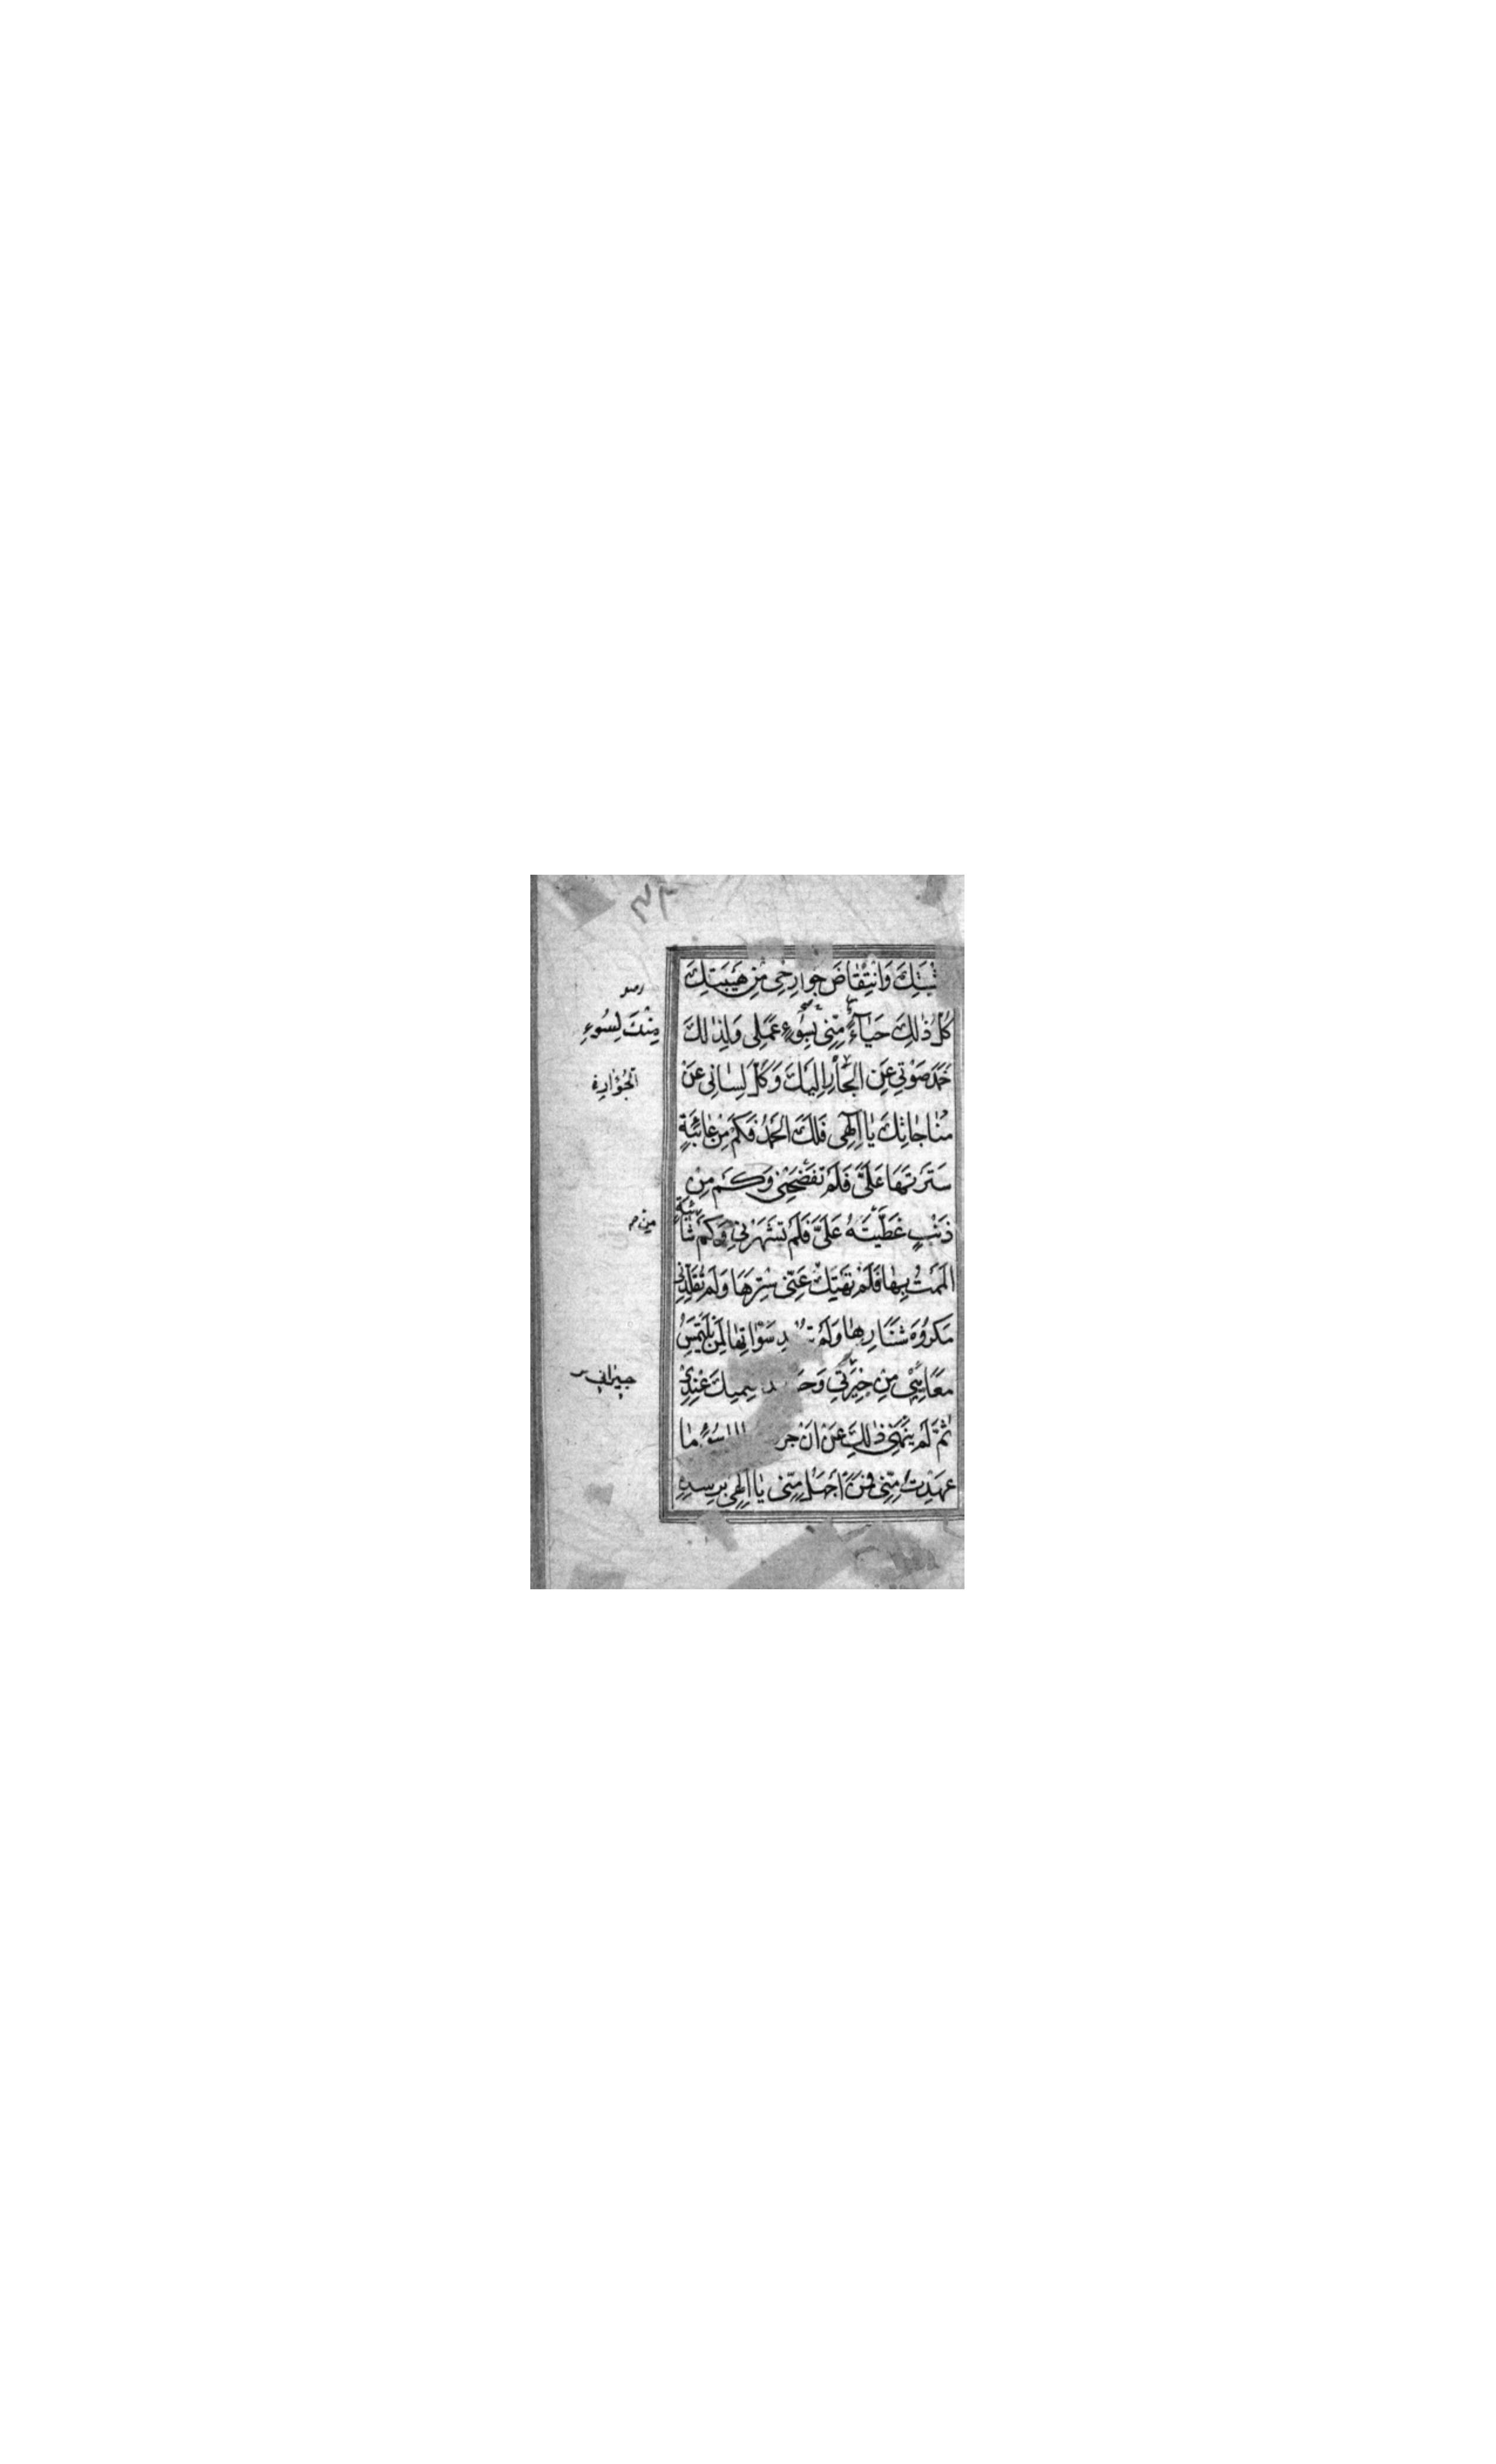 وَانْتِقَاضَ جَوَارِحِي مِنْ هَيْبَتِكَ
كُلُّ ذٰلِكَ حَيَاءً مِنِّي بِسُوءِ عَمَلِي وَلِذٰلِكَ
خَمَدَ صَوْتِي عَنِ الْجَأْرِ اِلَيْكَ وَكَلَّ لِسَانِي عَنْ
مُنَاجَاتِكَ يَا اِلٰهِي فَلَكَ الْحَمْدُ فَكَمْ مِنْ عَائِبَةٍ
سَتَرْتَهَا عَلَيَّ فَلَمْ تَفْضَحْنِي وَكَمْ مِنْ
ذَنْبٍ غَطَّيْتَهُ عَلَيَّ فَلَمْ تَشْهَرْنِي وَكَمْ شَائِبَةٍ
اَلْمَمْتُ بِهَا فَلَمْ تَهْتِكْ عَنِّي سِتْرَهَا وَلَمْ تُقَلِّدْنِي
مَكْرُوهَ شَنَارِهَا وَلَمْ سَوْاٰتِهَا لِمَنْ يَلْتَمِسُ
مَعَايِبِي مِنْ جِيرَتِي عِنْدِي
ثُمَّ لَمْ يَنْهَنِي ذٰلِكَ عَنْ اَنْ مَا
عَهِدْتَ مِنِّي فَمَنْ اَجْهَلُ مِنِّي يَا اِلٰهِي بِرُشْدِهِ
مِنْكَ لِسُوءِ
الْجُؤَارِ
مِنْ
جيراني